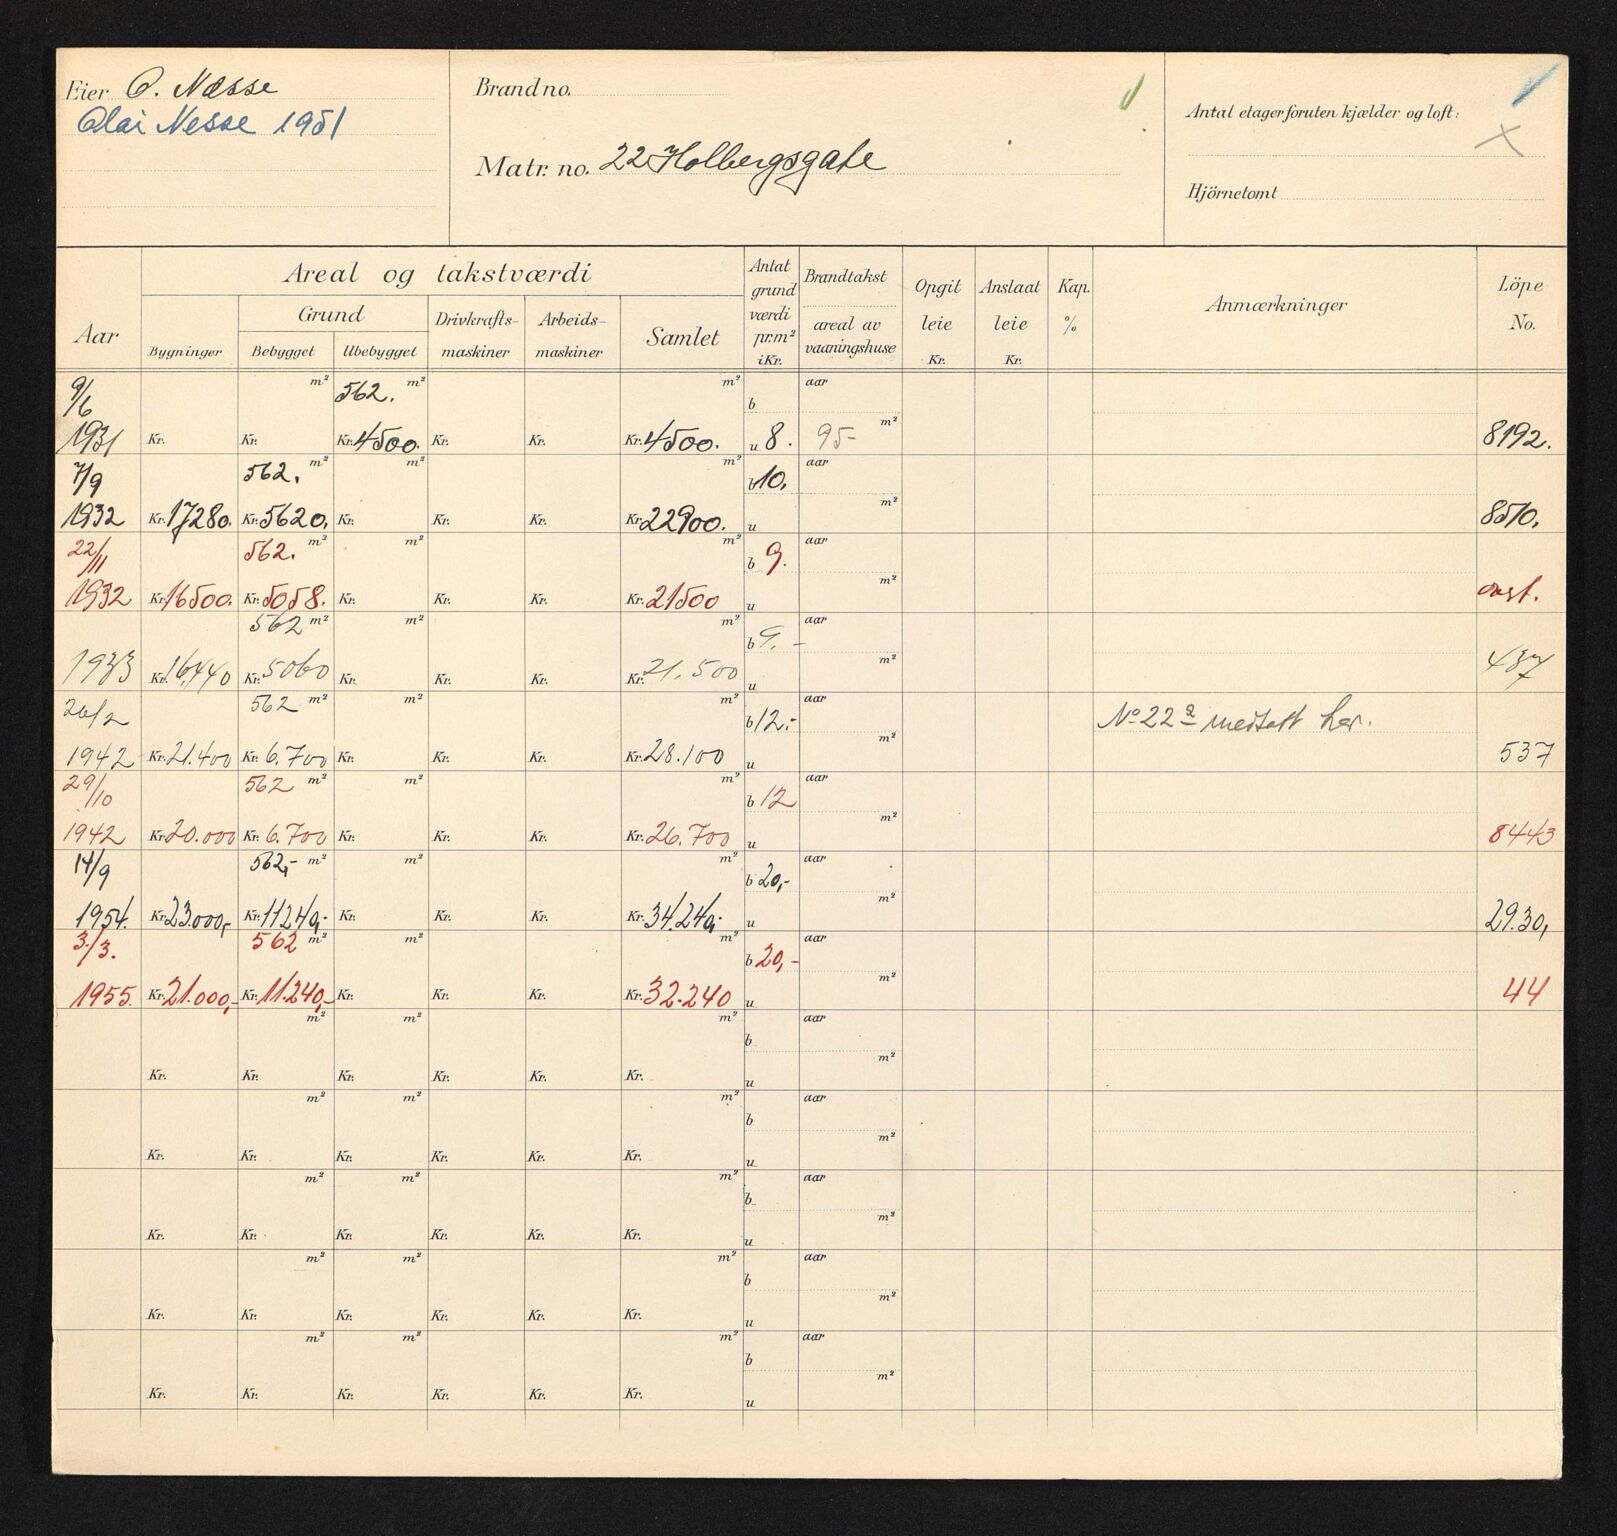 Eier O. Næsse
Olai Nesse 1951
Brand no.
Matr. no. 22 Holbergsgate
Antal etager foruten kjælder og loft:
Hjörnetomt
Aar
Areal og takstværdi
Bygninger
Grund
Bebygget
Ubebygget
Drivkrafts-
maskiner
Arbeids-
maskiner
Samlet
Antat
grund
værdi
pr. m²
i Kr.
Brandtakst
areal av
vaaningshuse
Opgit
leie
Kr.
Anslaat
leie
Kr.
Kap.
%
Anmærkninger
Löpe
No.
9/6 m² 562. m² m² b aar
1931 Kr. Kr. Kr. 4500. Kr. Kr. Kr. 4500. u 8. 95- m² 8192.
7/9 562. m² m² m² b 10. aar
1932 Kr. 17280. Kr. 5620. Kr. Kr. Kr. Kr. 22900. u m² 8510.
22/11 562. m² m² m² b 9. aar
1932 Kr. 16500. Kr. 5058. Kr. Kr. Kr. Kr. 21500 u m²
562 m² m² m² b 9.- aar
1933 Kr. 16,440 Kr. 5060 Kr. Kr. Kr. Kr. 21.500 u m² 437
26/2 562 m² m² m² b 12.- aar No 22a medtatt her.
1942 Kr. 21.400 Kr. 6.700 Kr. Kr. Kr. Kr. 28.100 u m² 537
29/10 562 m² m² m² b 12 aar
1942 Kr. 20.000 Kr. 6.700 Kr. Kr. Kr. Kr. 26.700 u m² 8443
14/9 562,- m² m² m² b 20,- aar
1954. Kr. 23.000,- Kr. 11240,- Kr. Kr. Kr. Kr. 34.240,- u m² 29.30,
3/3. 562 m² m² m² b 20,- aar
1955. Kr. 21.000,- Kr. 11.240,- Kr. Kr. Kr. Kr. 32.240 u m² 44
m² m² m² b aar
Kr. Kr. Kr. Kr. Kr. Kr. u m²
m² m² m² b aar
Kr. Kr. Kr. Kr. Kr. Kr. u m²
m² m² m² b aar
Kr. Kr. Kr. Kr. Kr. Kr. u m²
m² m² m² b aar
Kr. Kr. Kr. Kr. Kr. Kr. u m²
m² m² m² b aar
Kr. Kr. Kr. Kr. Kr. Kr. u m²